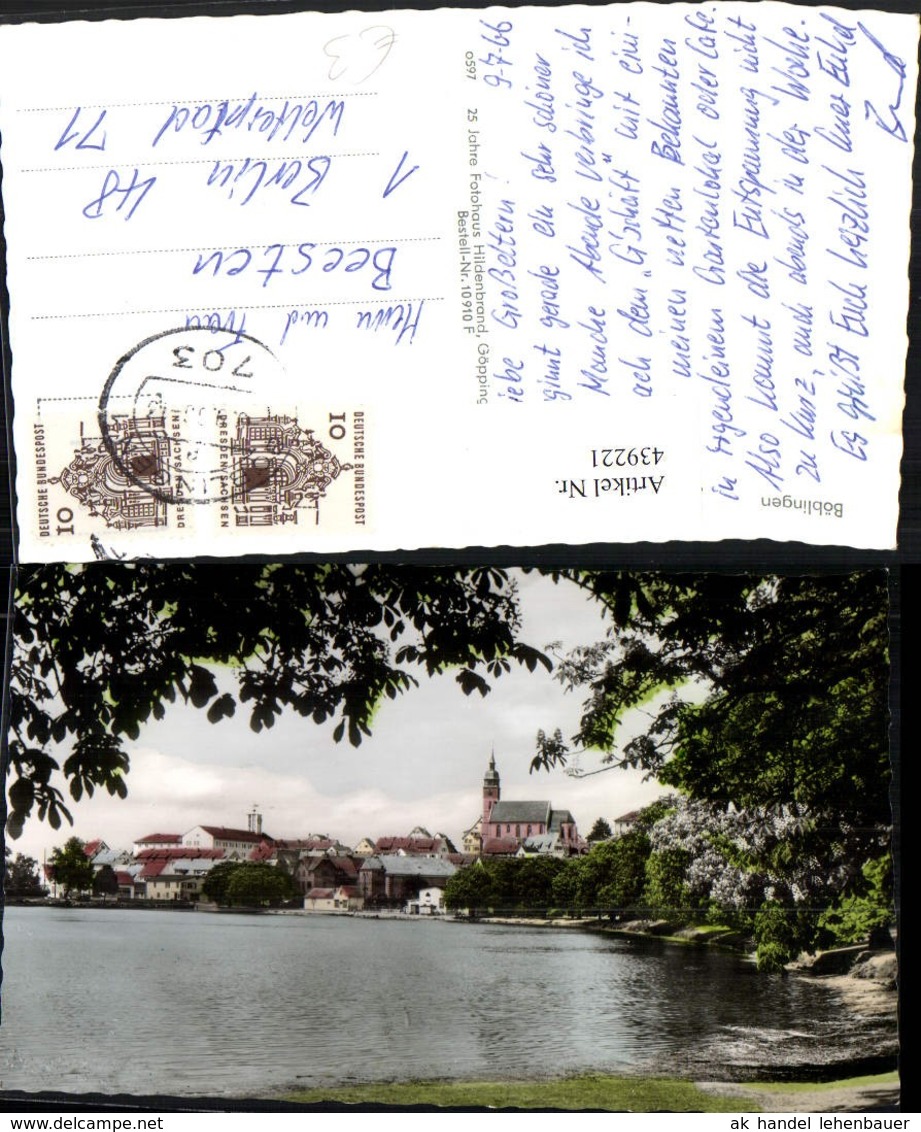 Böblingen
9-7-66
iebe Großeltern!
ginnt gerade ein sehr schöner
Manche Abende verbringe ich
ach dem „Gschäft“ mit eini-
meinen netten Bekannten
in irgendeinem Gartenlokal oder Cafe.
Also kommt die Entspannung nicht
zu kurz, auch abends in der Woche.
Es grüßt Euch herzlich Euer Enkel
Artikel Nr.
439221
o597 25 Jahre Fotohaus Hildenbrand, Göpping
Bestell-Nr. 10 910 F
Herrn und Frau
Beesten
1 Berlin 48
Welterpfad 71
€3
703
DEUTSCHE BUNDESPOST
10
DRESDEN/SACHSEN
DEUTSCHE BUNDESPOST
10
DRESDEN/SACHSEN
ak handel lehenbauer